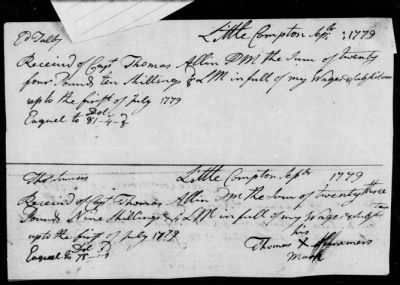 Ed Talby Little Compton Sept: 1779
Receivd of Capt Thomas Allin DM the Sum of twenty
four Pounds ten Shillings LM in full of my Wages &
up to the first of July 1779
Eaquel to Dol 81-4-3
Thos Little Compton Sept 1779
Receivd of Capt Thomas Allin DM the Sum of twenty three
Pounds Nine Shillings & LM in full of my Wage &
upto the first of July 1779
Eaquel to Dol 78
his
Thomas X
Mark